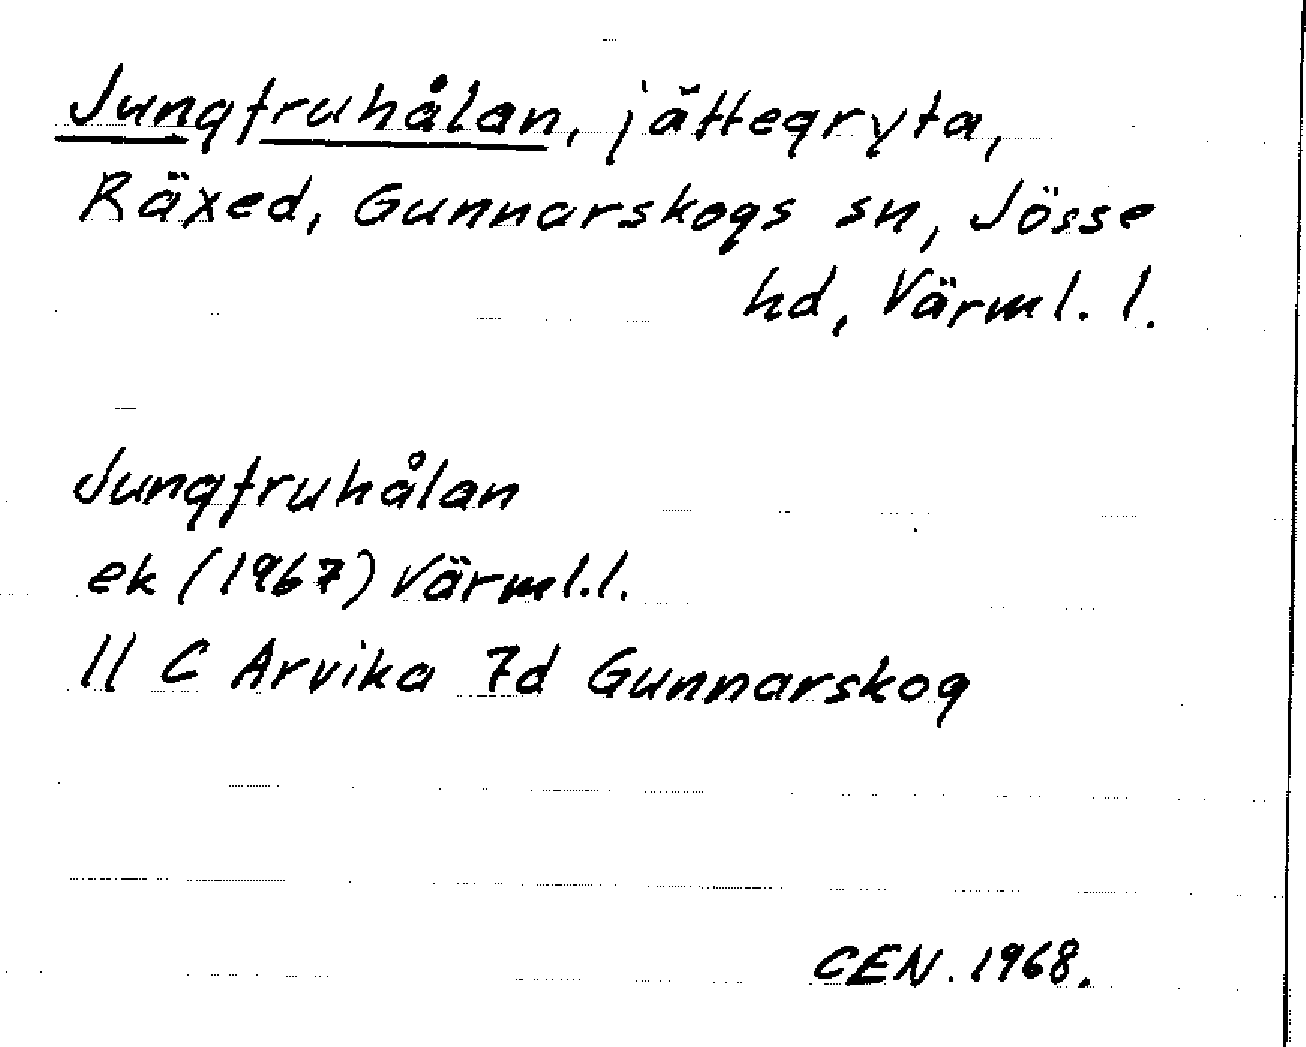 Jungfruhålan, jättegryta,
Räxed, Gunnarskogs sn, Jösse
hd, Värml. l.
Jungfruhålan
ek (1967) Värml.l.
11 C Arvika 7d Gunnarskog
CEN. 1968.